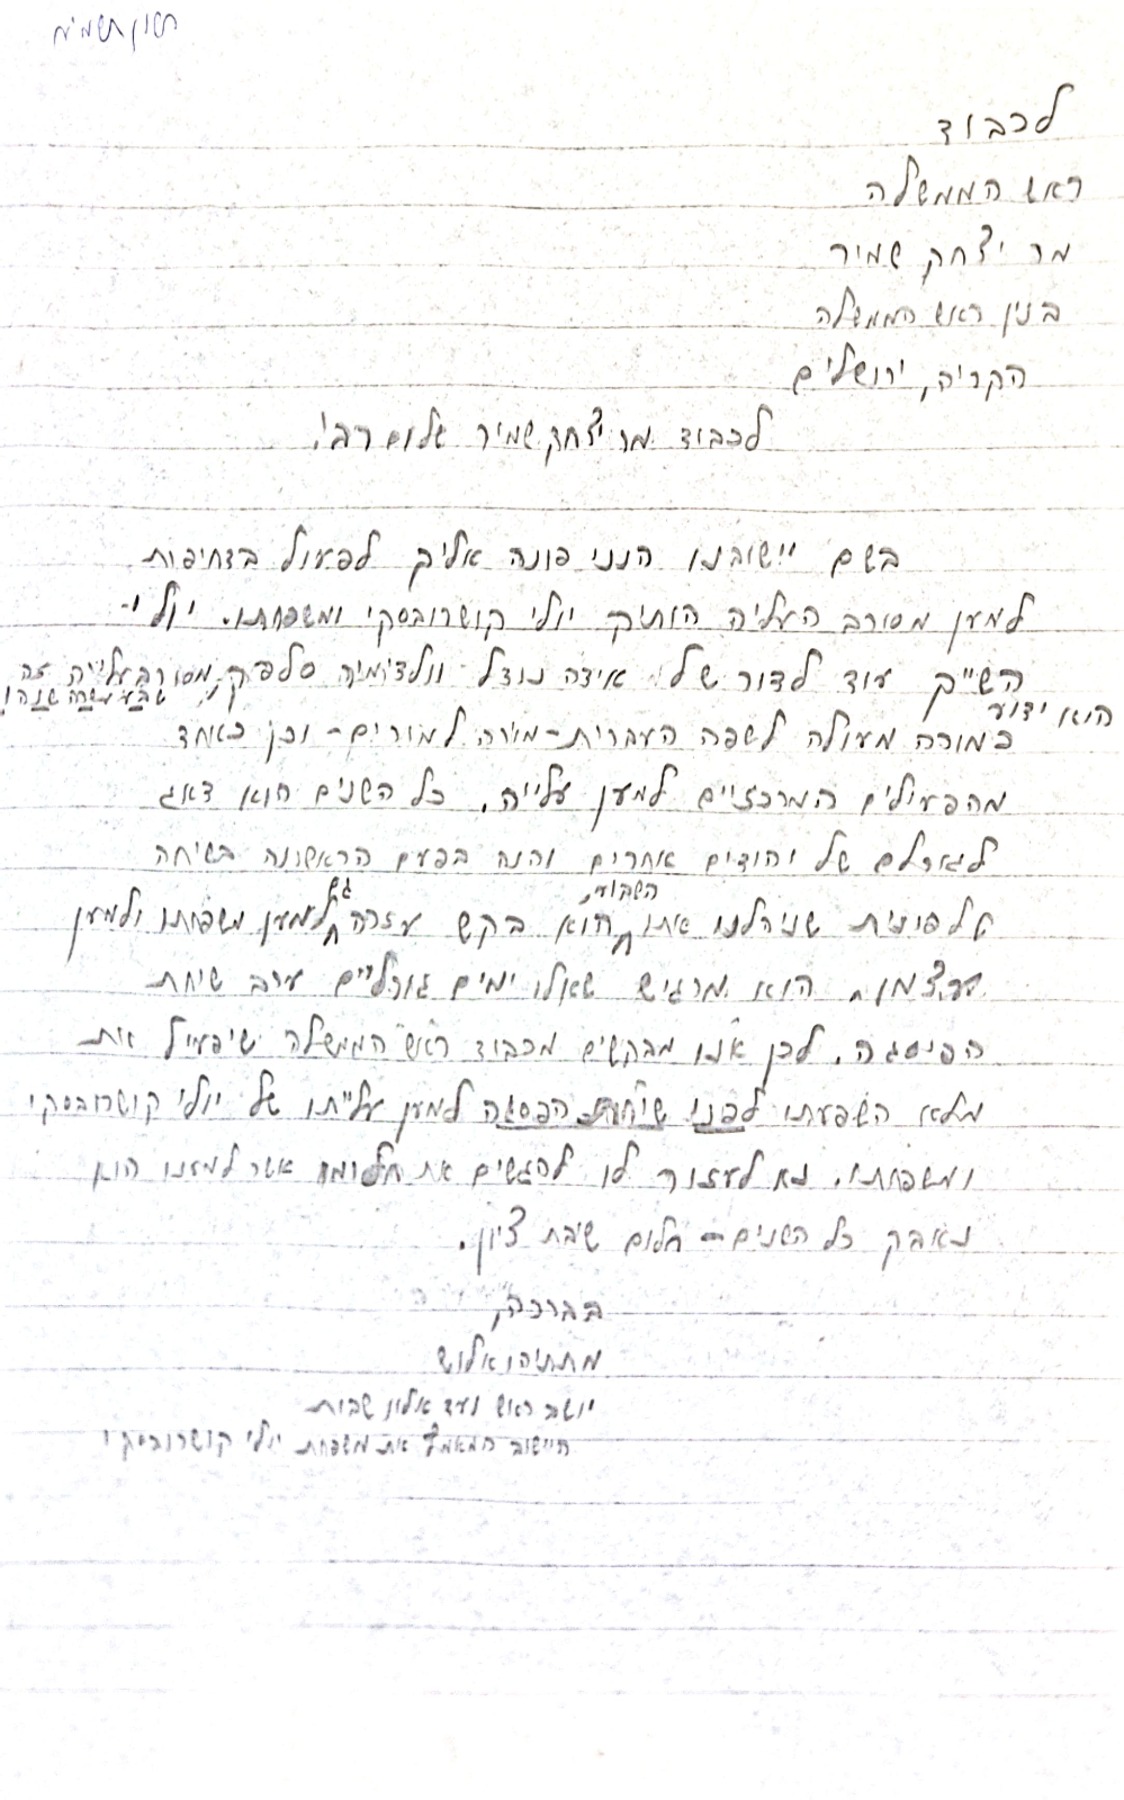 חשון תשמ"ח
לכבוד
ראש הממשלה
מר יצחק שמיר
בנין ראש הממשלה
הקריה, ירושלים
לכבוד מר יצחק שמיר שלום רב!
בשם יישובנו הנני פונה אליך לפעול בדחיפות
למען מסורב העליה הותיק יולי קושרובסקי ומשפחתו. יולי -
השייך עוד לדור של אידה נודל וולדימיר סלפק, מסורב עלייה זה
שבע עשרה שנה!
הוא ידוע
כמורה מעולה לשפה העברית - מורה למורים - וכן כאחד
מהפעילים המרכזיים למען עלייה. כל השנים הוא דאג
לגורלם של יהודים אחרים והנה בפעם הראשונה בשיחה
השבוע, גם
טלפונית שניהלנו אתו הוא בקש עזרה למען משפחתו ולמען
עצמו. הוא מרגיש שאלו ימים גורליים ערב שיחת
הפיסגה. לכן אנו מבקשים מכבוד ראש הממשלה שיפעיל את
מלא השפעתו לפני שיחת הפסגה למען עלייתו של יולי קושרובסקי
ומשפחתו. נא לעזור לו להגשים את חלומו אשר למענו הוא
נאבק כל השנים - חלום שיבת ציון.
בברכה,
מתתיהו אלוש
יושב ראש ועד אלון שבות
היישוב המאמץ את משפחת יולי קושרובסקי